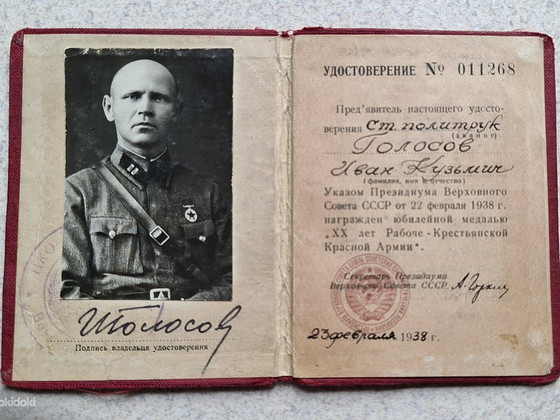 НКО
ИГолосов
Подпись владельца удостоверения
УДОСТОВЕРЕНИЕ № 011268
Пред'явитель настоящего удосто-
верения ст. политрук
(звание)
Голосов
Иван Кузьмич
(фамилия, имя и отчество)
Указом Президиума Верховного
Совета СССР от 22 февраля 1938 г.
награжден юбилейной медалью
„XX лет Рабоче-Крестьянской
Красной Армии".
Секретарь Президиума
Верховного Совета СССР. А. Горкин
23 февраля 1938 г.
okidoki